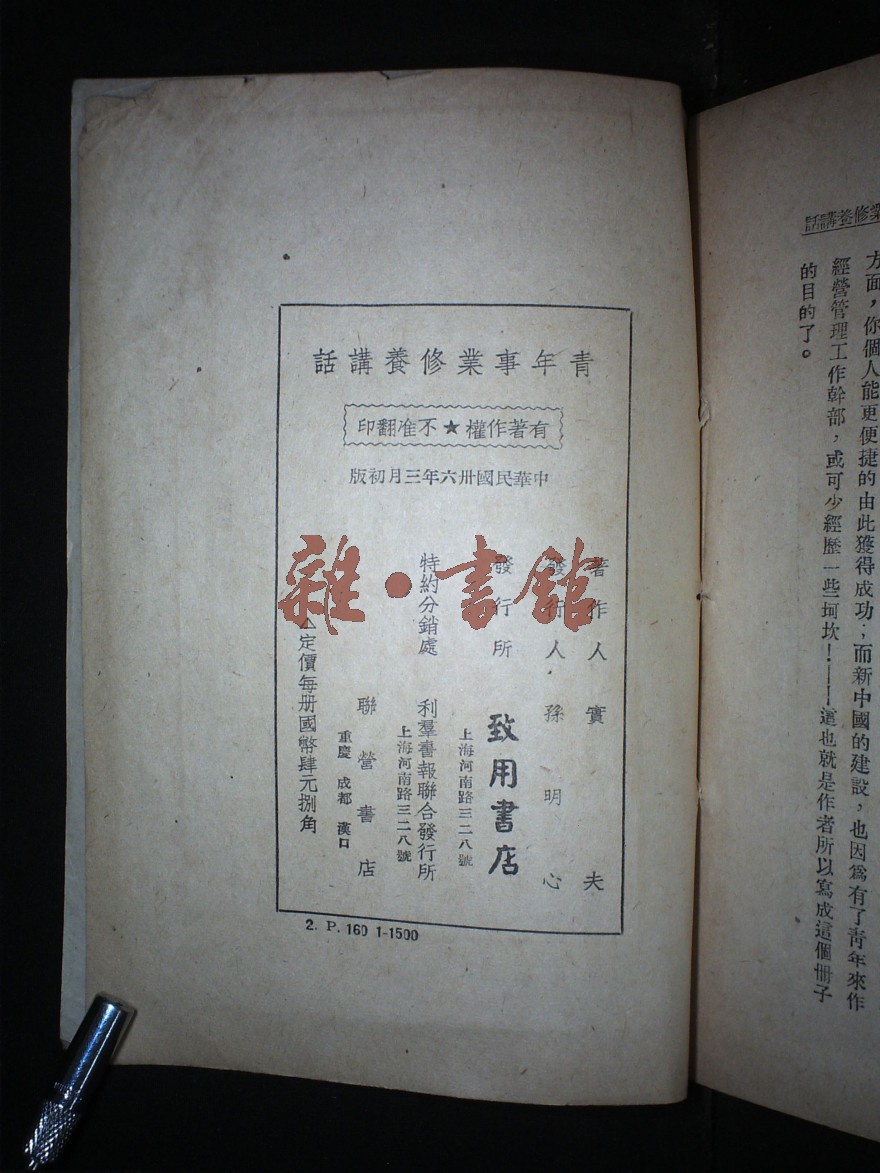 業修養講話
方面，你個人能更便捷的由此獲得成功；而新中國的建設，也因爲有了靑年來作
經營管理工作幹部，或可少經歷一些坷坎！——這也就是作者所以寫成這個冊子
的目的了。
青年事業修養講話
有著作權★不准翻印
中華民國卅六年三月初版
著作人 寶夫
發行人 孫明心
發行所 致用書店
上海河南路三二八號
特約分銷處 利羣書報聯合發行所
上海河南路三二八號
聯營書店
重慶 成都 漢口
△定價每册國幣肆元捌角
2. P. 160 1-1500
雜·書館